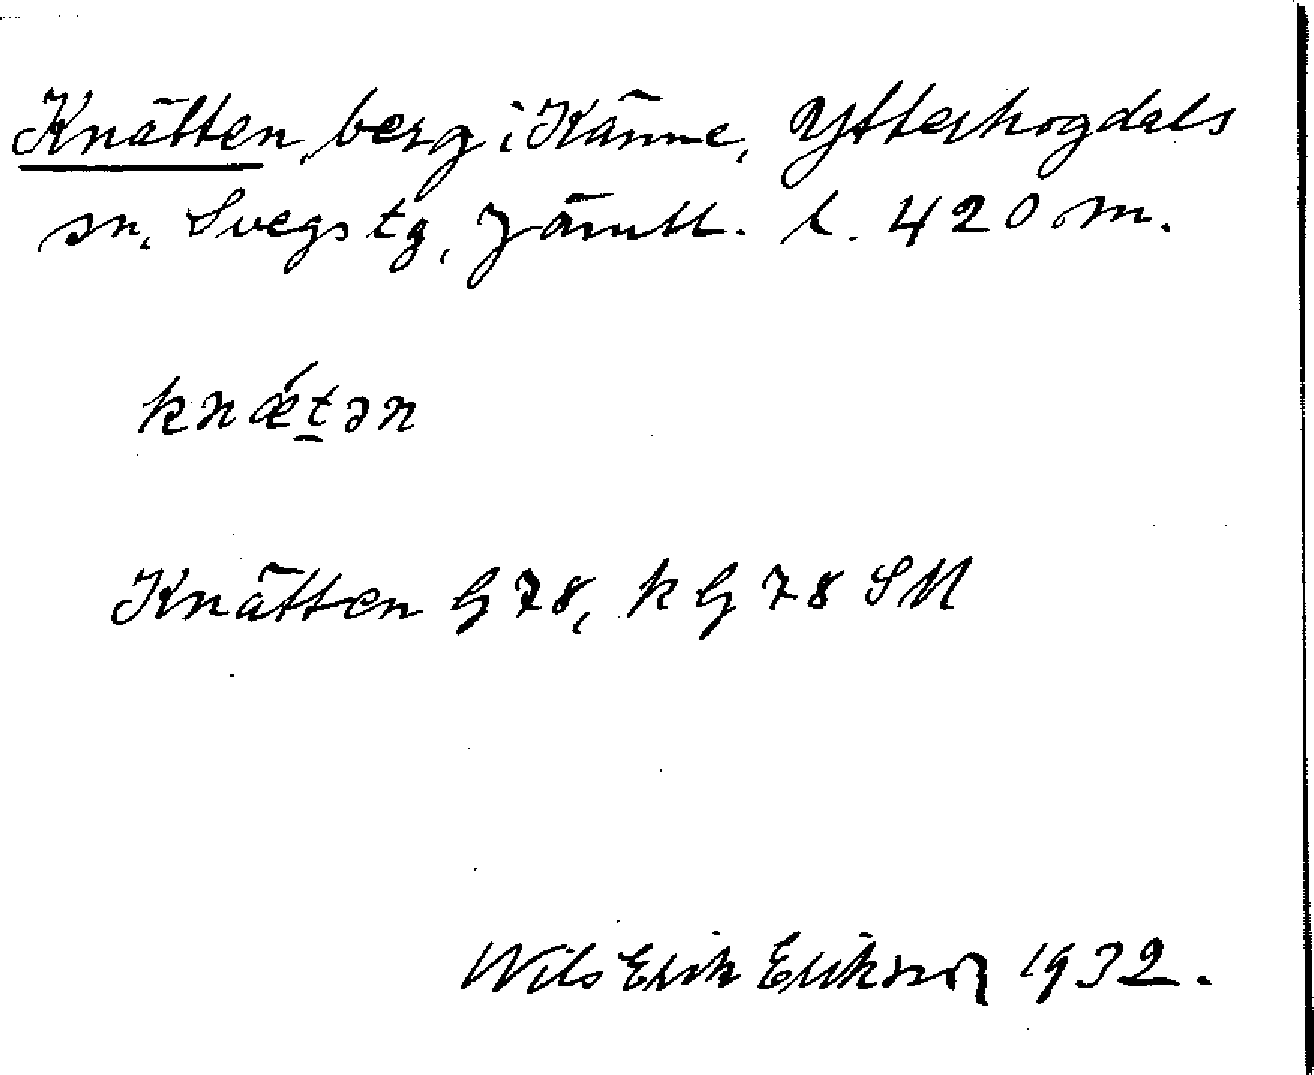 Knätten, berg i Känne, Ytterhogdals
sn, Svegs tg, Jämtl. l. 420 m.
knǽt̠ən
Knätten G 78, k G 78 SM
Nils Erik Erikson 1932.